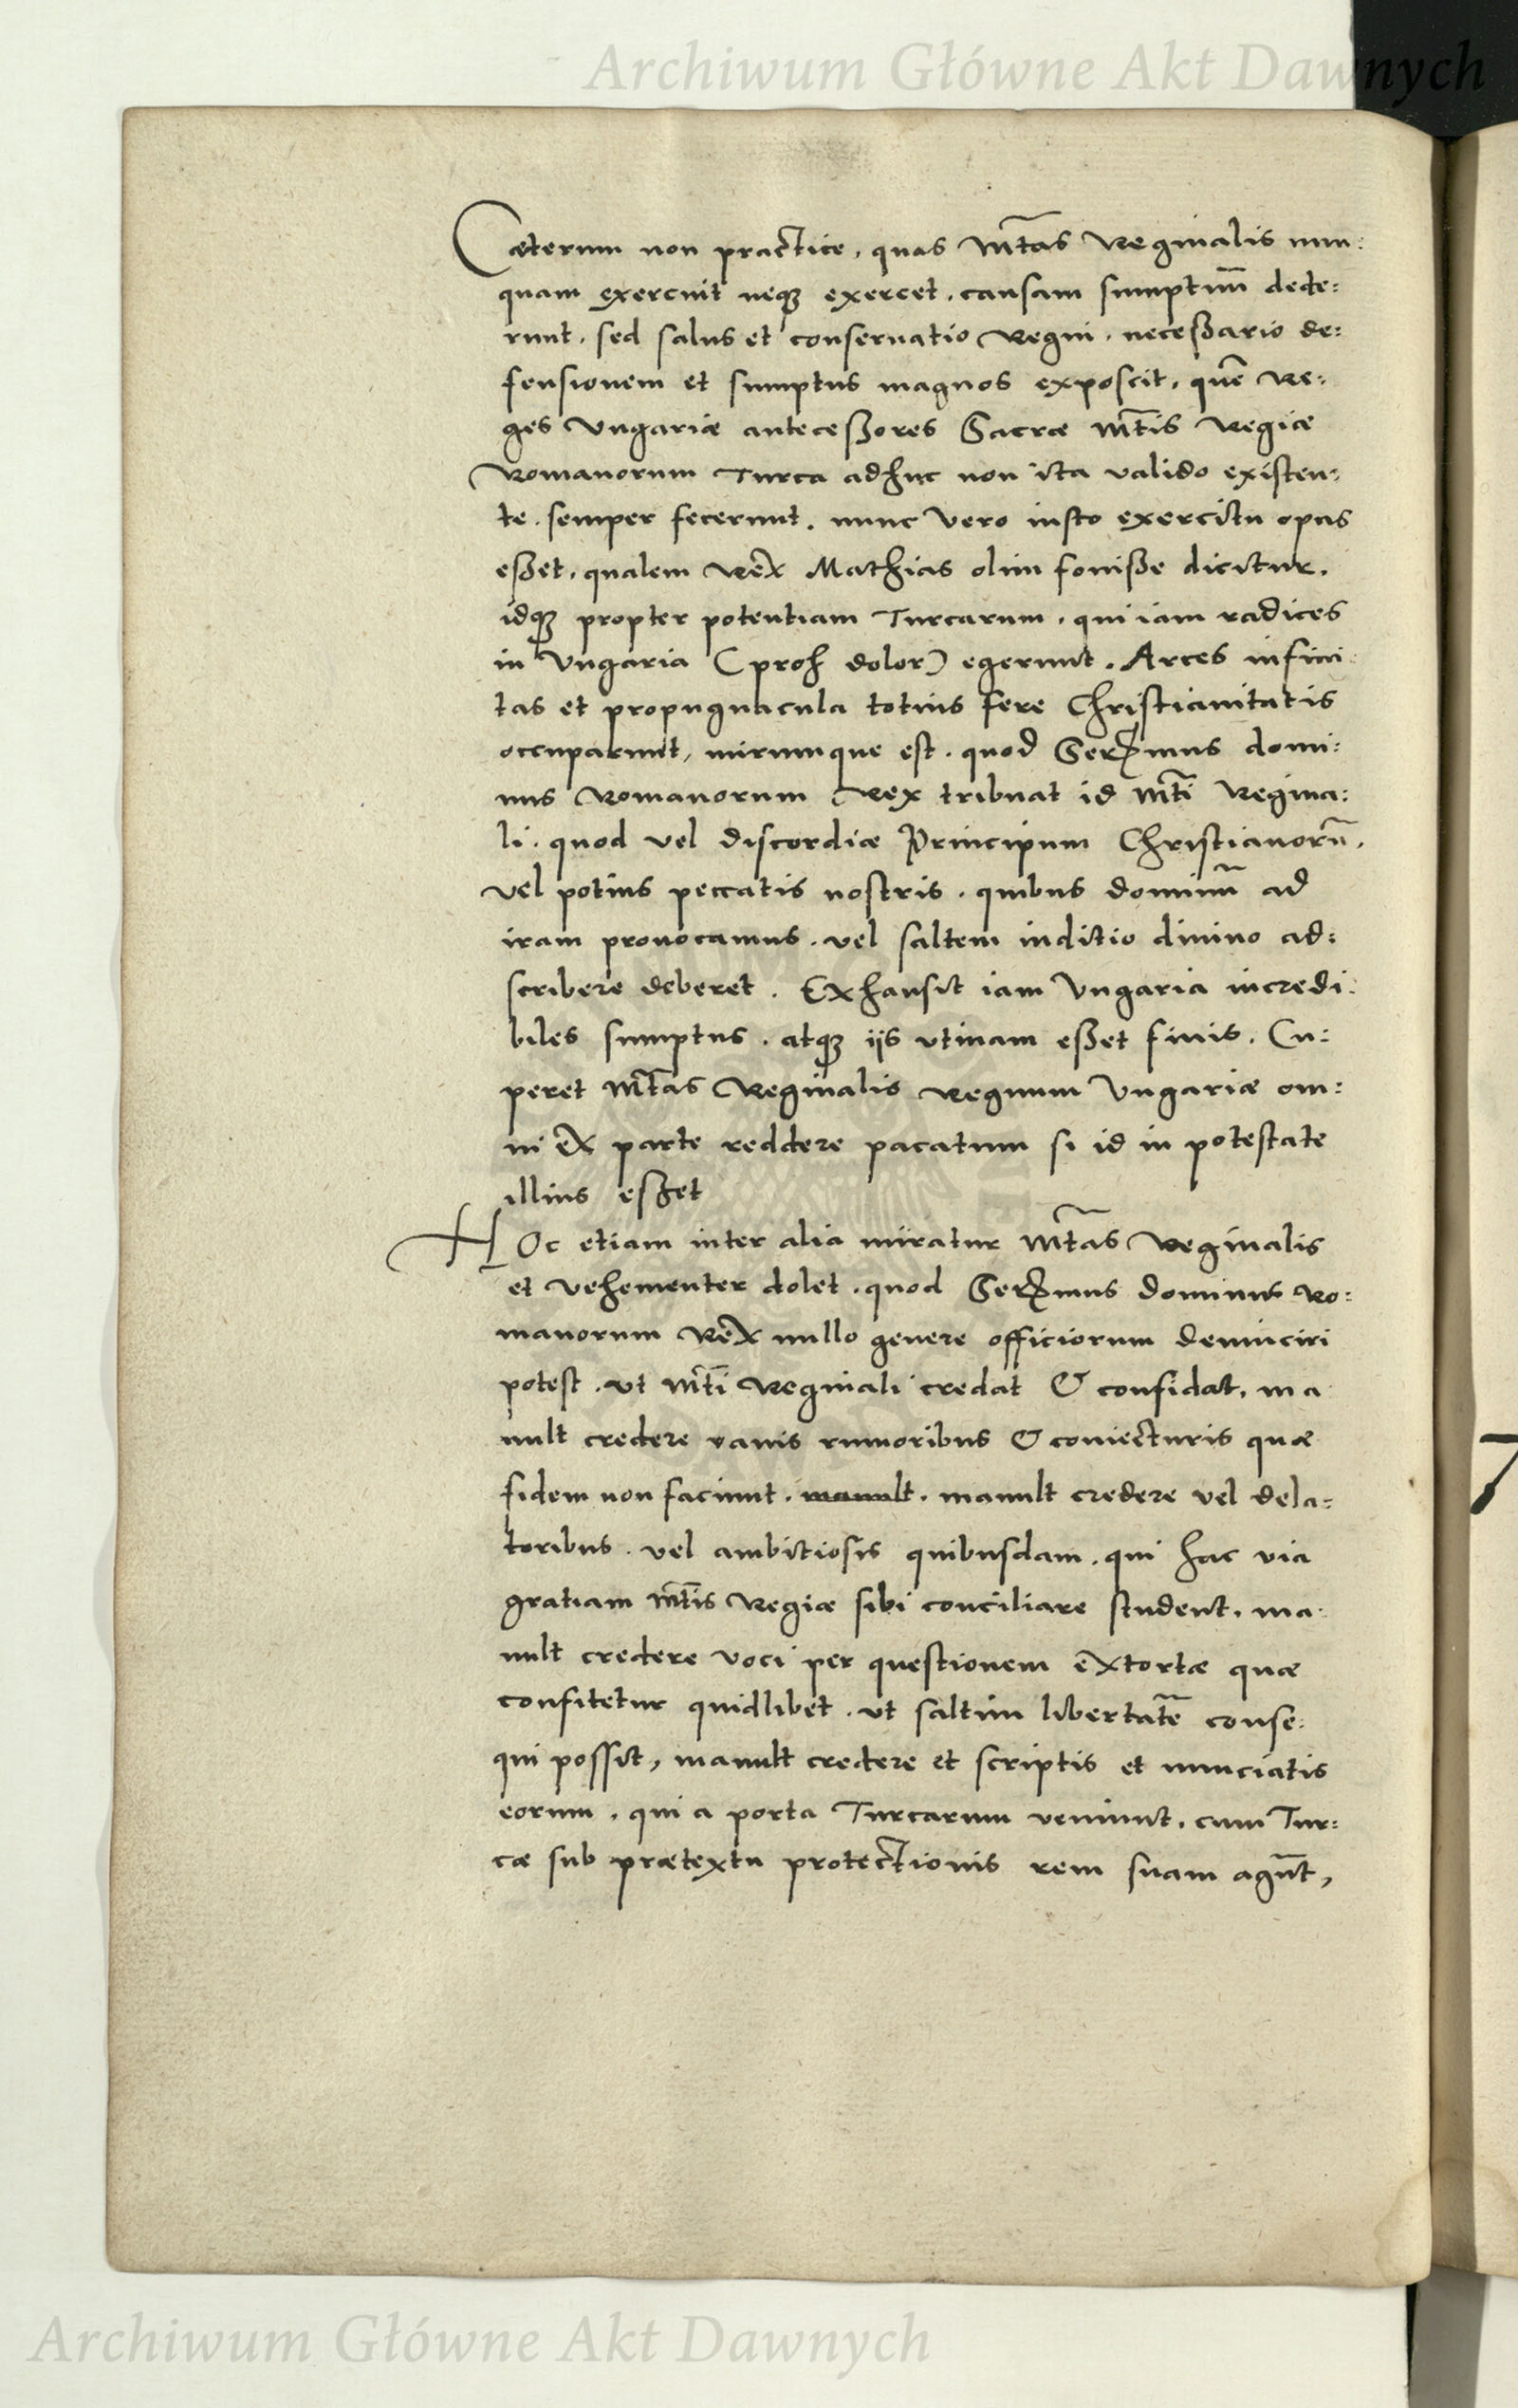 Archiwum Główne Akt Dawnych
Cæterum non practice, quas Mtas Reginalis nun:
quam exercuit neqꝫ exercet, causam sumptuū dede:
runt, sed salus et conseruatio Regni, neceßario de:
fensionem et sumptus magnos exposcit, quē Re:
ges Vngariæ anteceßores Sacræ Mtis Regiæ
Romanorum Turca adhuc non ita valido existen:
te, semper fecerunt, nunc vero iusto exercitu opus
eßet, qualem Rex Mathias olim fouiße dicitur,
idqꝫ propter potentiam Turcarum, qui iam radices
in Vngaria (proh dolor) egerunt. Arces infini:
tas et propugnacula totius fere Christianitatis
occuparunt, mirumque est, quod Serᵐmus domi:
nus Romanorum Rex tribuat id Mti Regina:
li, quod vel discordiæ Principum Christianorū,
vel potius peccatis nostris, quibus dominū ad
iram prouocamus, vel saltem iuditio diuino ad:
scribere deberet. Exhausit iam Vngaria incredi:
biles sumptus, atqꝫ ijs vtinam eßet finis. Cu:
peret Mtas Reginalis Regnum Vngariæ om:
ni ex parte reddere pacatum si id in potestate
illius eßet
HOc etiam inter alia miratur Mtas Reginalis
et vehementer dolet, quod Serᵐmus dominus Ro:
manorum Rex nullo genere officiorum deuinciri
potest, vt Mti Reginali credat & confidat, ma
uult credere vanis rumoribus & coniecturis quæ
fidem non faciunt, mauult, mauult credere vel dela:
toribus, vel ambitiosis quibusdam, qui hac via
gratiam Mtis Regiæ sibi conciliare student, ma:
uult credere voci per questionem extortæ quæ
confitetur quidlibet, vt saltim libertatē conse:
qui possit, mauult credere et scriptis et nunciatis
eorum, qui a porta Turcarum veniunt, cum Tur:
cæ sub prætextu protectionis rem suam agūt,
Archiwum Główne Akt Dawnych